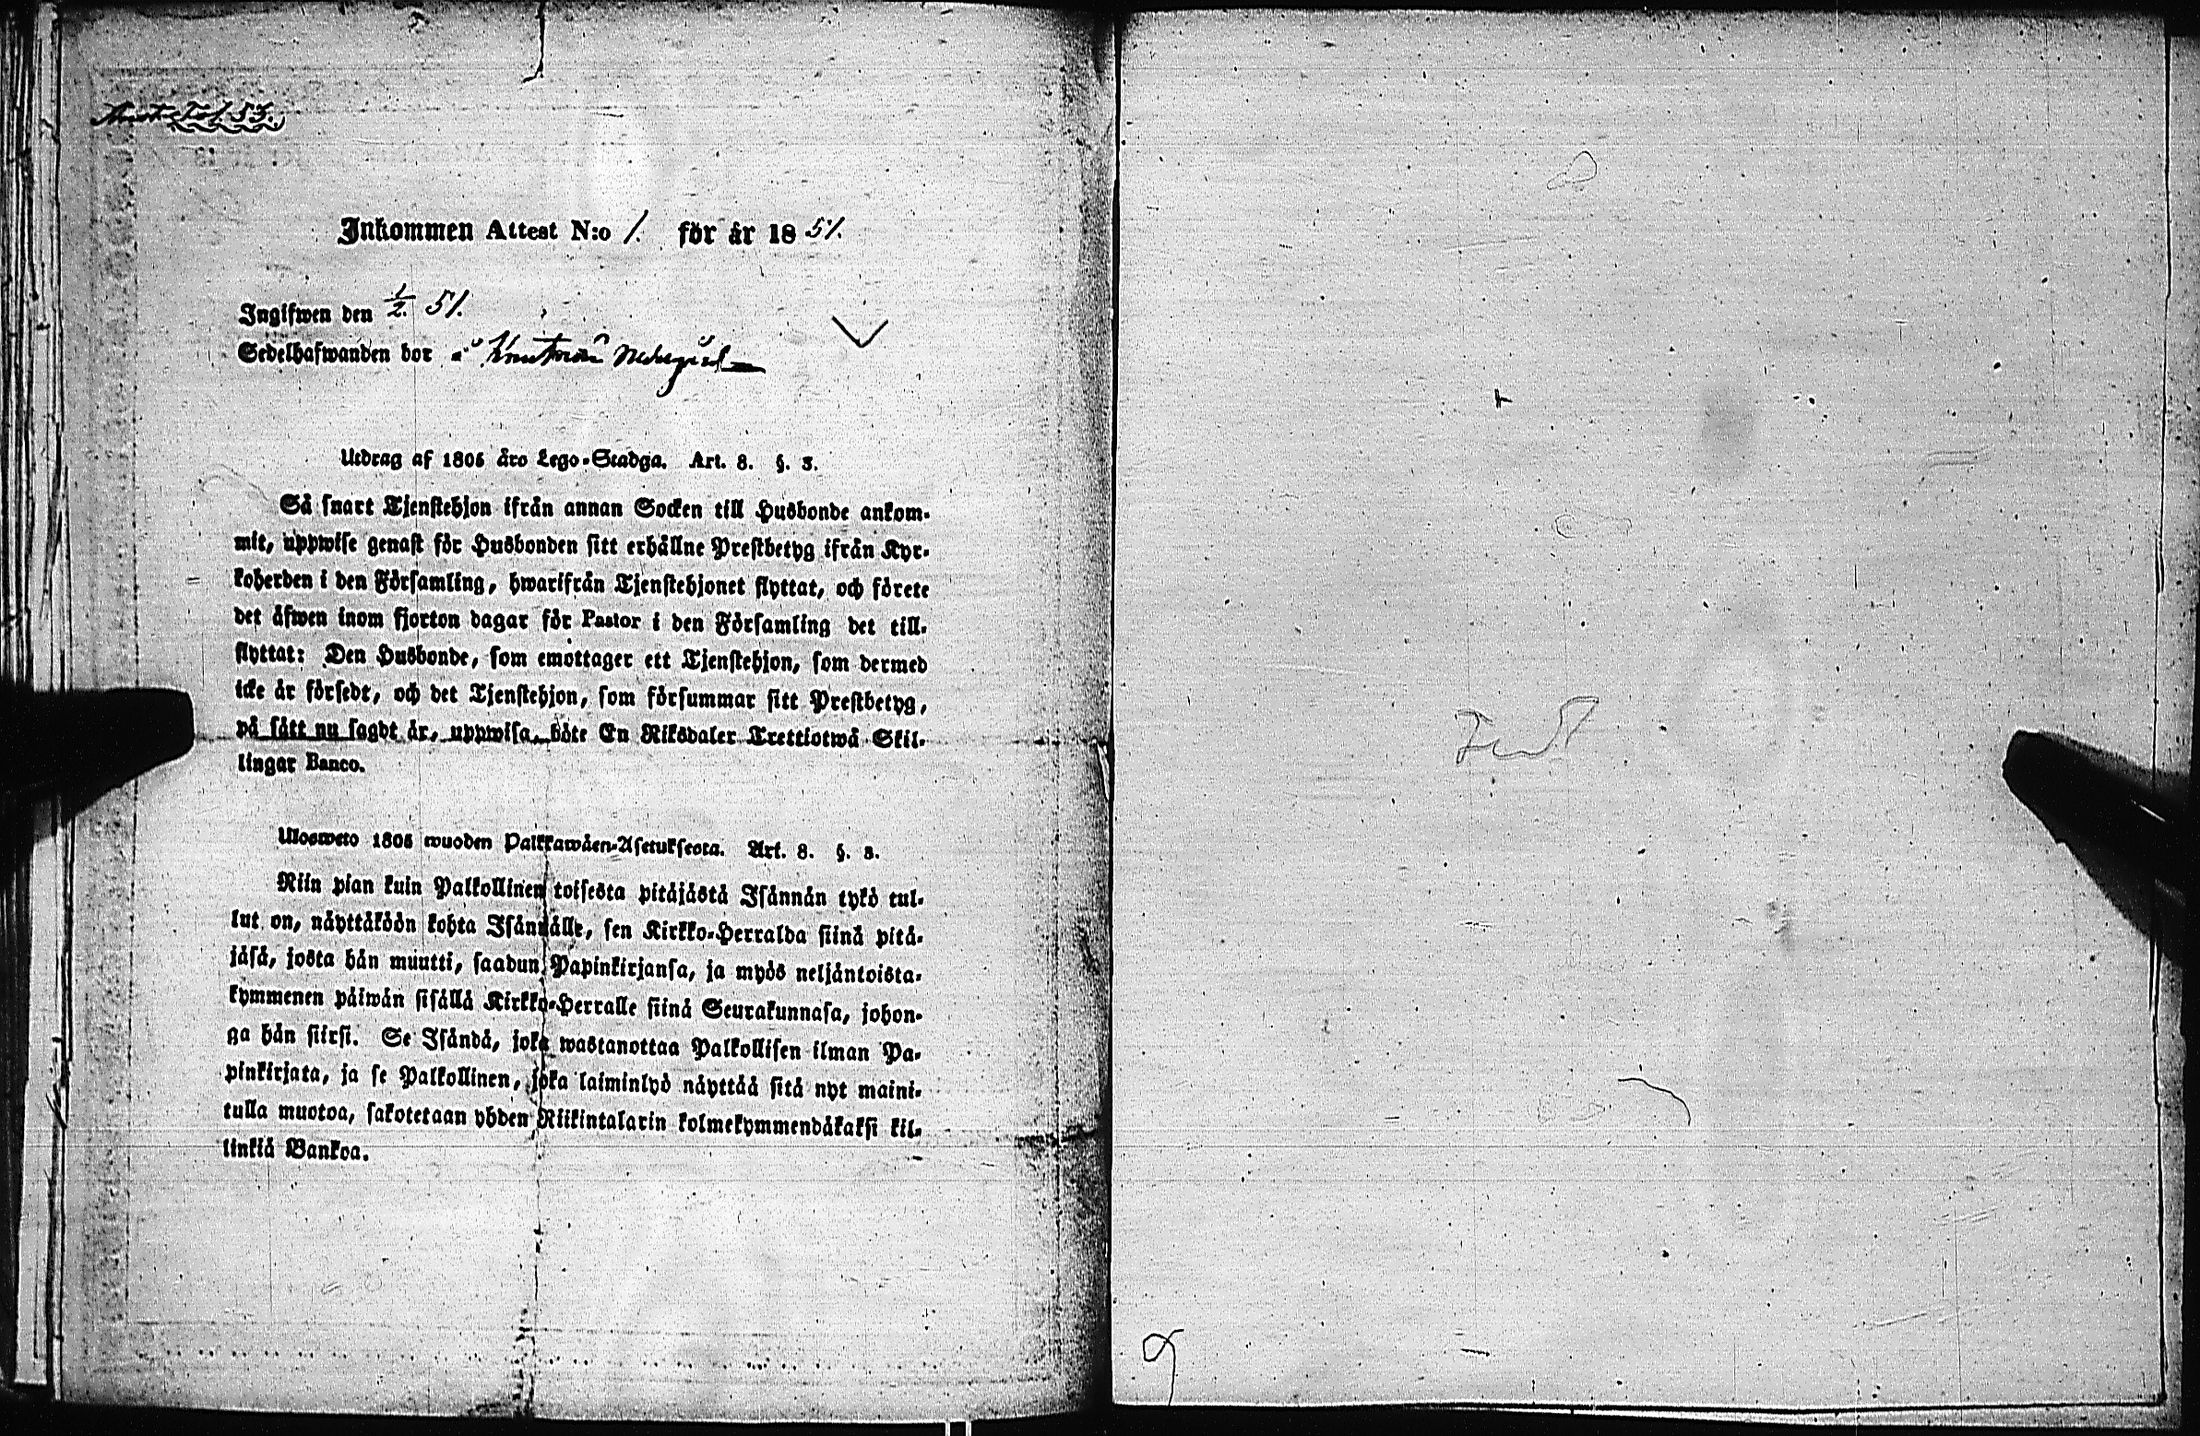 Fol 53.
Inkommen Attest N:o 1. för år 1851.
Ingifwen den 1/2. 51.
Sedelhafwanden bor å
Utdrag af 1805 års Lego-Stadga. Art. 8. §. 3.
Så snart Tjenstehjon ifrån annan Socken till Husbonde ankom-
mit, uppwise genast för Husbonden sitt erhållne Prestbetyg ifrån Kyr-
koherden i den Församling, hwarifrån Tjenstehjonet flyttat, och förete
det åfwen inom fjorton dagar för Pastor i den Församling det till-
flyttat: Den Husbonde, som emottager ett Tjenstehjon, som dermed
icke år försedt, och det Tjenstehjon, som försummar sitt Prestbetyg,
på sått nu sagdt år, uppwisa, båte En Riksdaler Trettiotwå Skil-
lingar Banco.
Uloswcto 1805 wuoden Palkkawåen-Asetuksesta. Art. 8. §. 3.
Niin pian kuin Palkollinen toisesta pitåjåstå Isånnån tykö tul-
lut on, nåyttåköön kohta Isånnålle, sen Kirkko-Herralda siinå pitå-
jåså, josta hån muutti, saadun Papinkirjansa, ja myös neljåntoista-
kymmenen påiwån sisållå Kirkko-Herralle siinå Seurakunnasa, johon-
ga hån siirsi. Se Isåndå, joka wastanottaa Palkollisen ilman Pa-
pinkirjata, ja se Palkollinen, joka laiminlyö nåyttåå sitå nyt maini-
tulla muotoa, sakotetaan yhden Riikintalarin kolmekymmendåkaksi kil-
linkiå Bankoa.